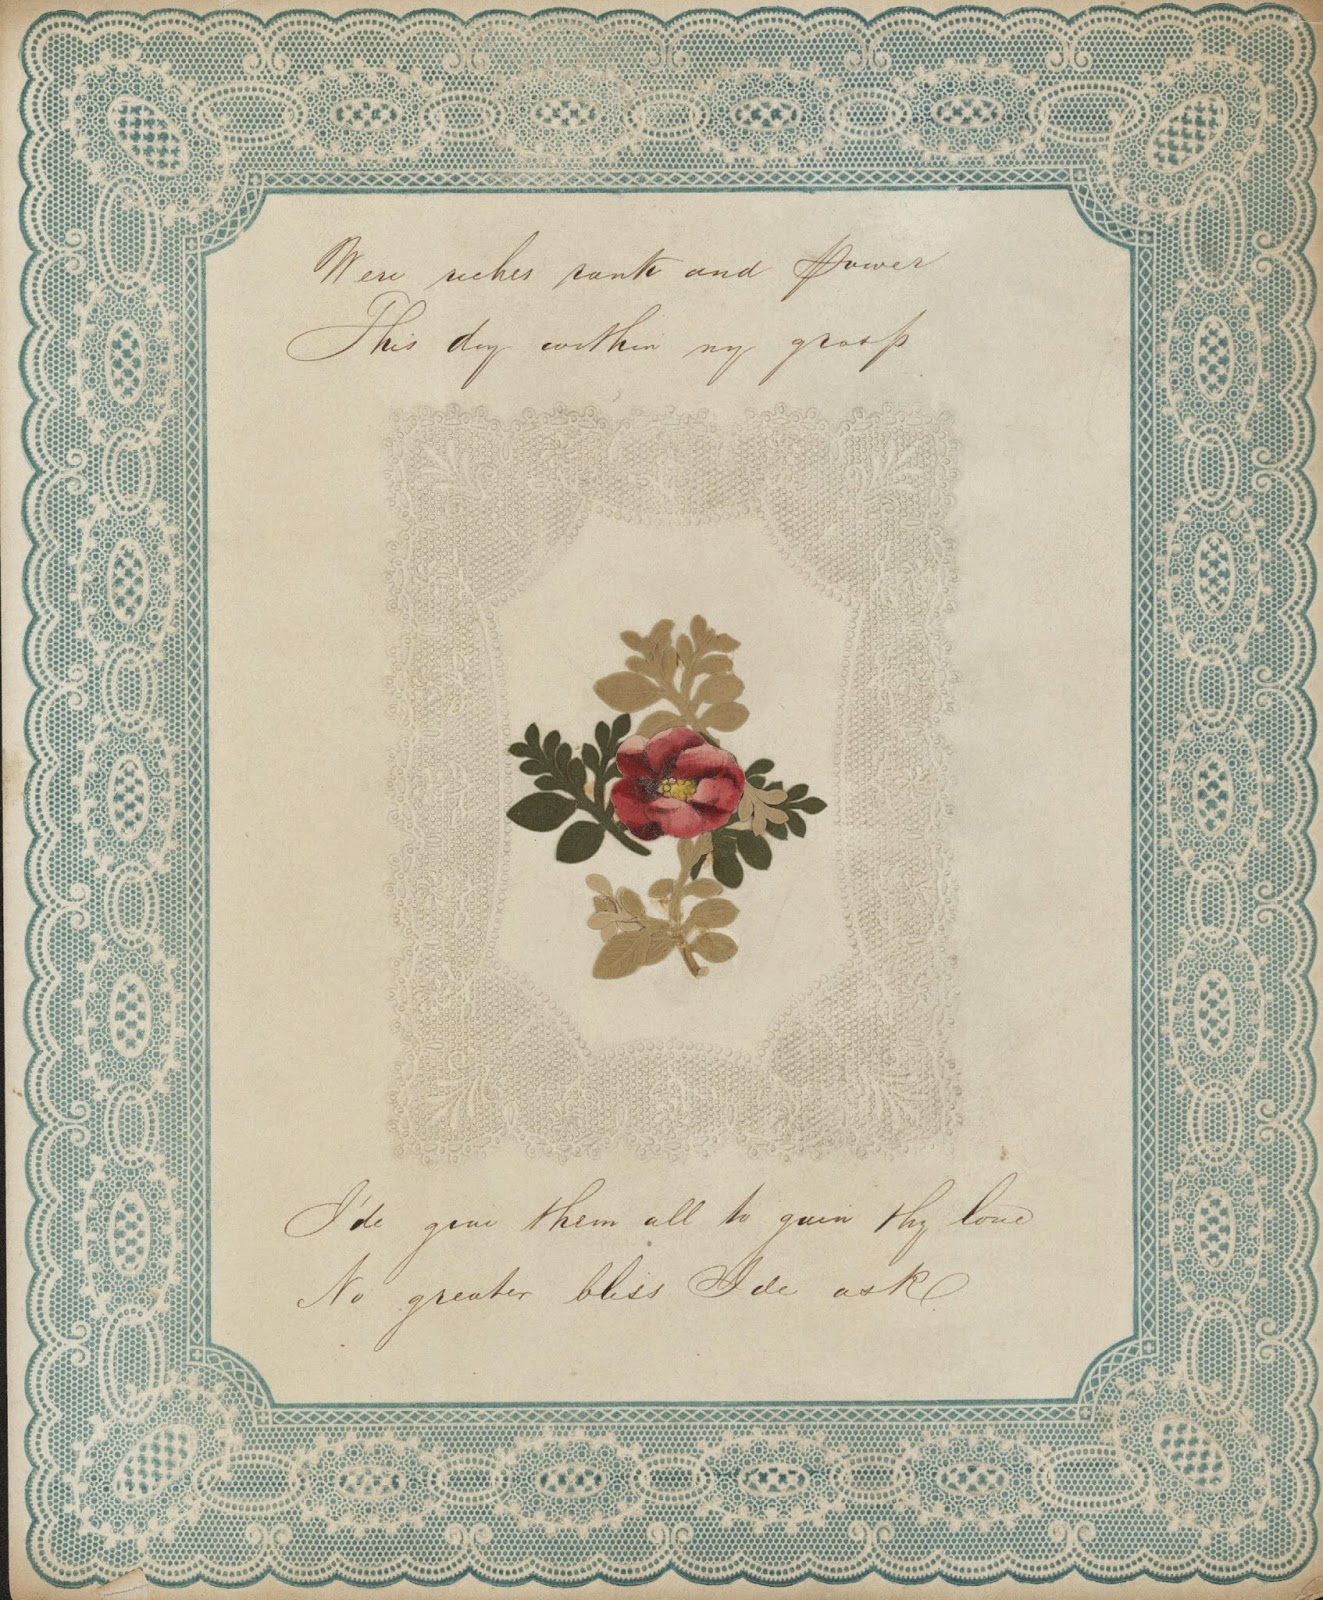 Were riches rank and power
This day within my grasp
I'de give them all to gain thy love
No greater bliss I de ask